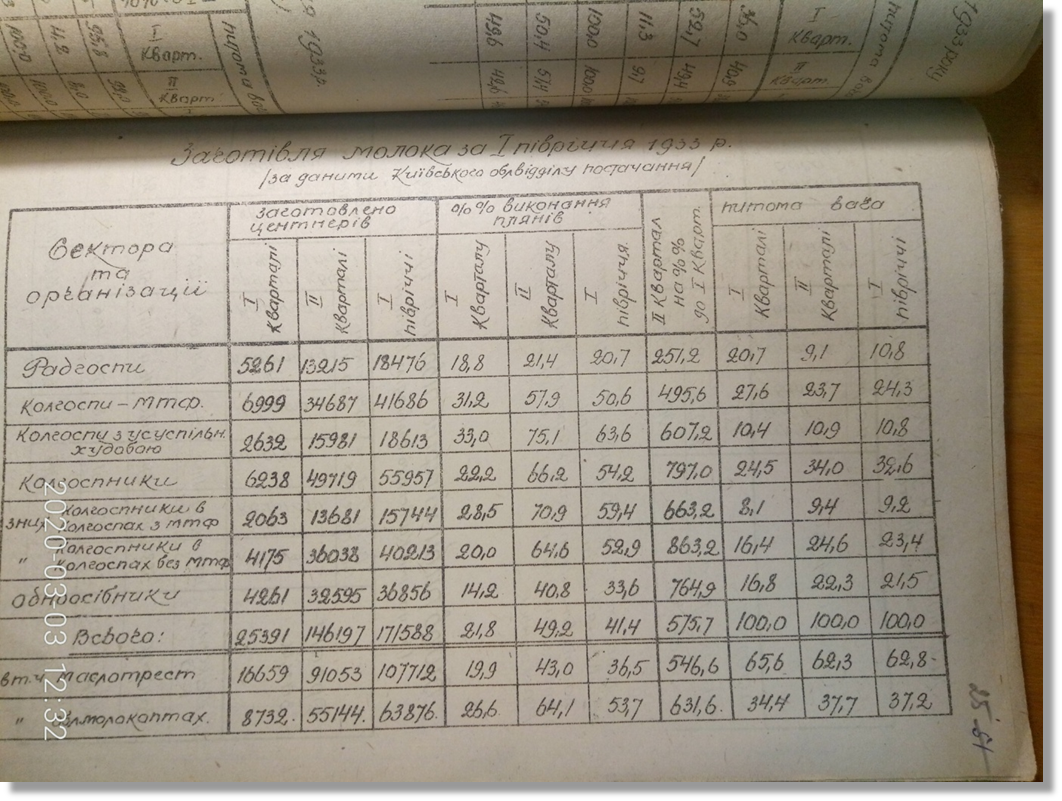 1933 року
питома вага
I
Кварт.
II
Кварт.
36,0
52,7
11,3
100,0
50,4
49,6
1933р.
питома вага
I
Кварт.
II
Кварт.
95,8
4,2
100,0
Заготівля молока за I півріччя 1933 р.
/за даними Київського облвідділу постачання/
Сектора та організації
заготовлено центнерів
%% виконання плянів
II Квартал на %% до I Кварт.
питома вага
I Кварталі
II Кварталі
I півріччі
I Кварталу
II Кварталу
I півріччя
I Кварталі
II Кварталі
I півріччі
Радгоспи 5261 13215 18476 18,8 21,4 20,7 251,2 20,7 9,1 10,8
Колгоспи – мтф. 6999 34687 41686 31,2 57,9 50,6 495,6 27,6 23,7 24,3
Колгоспи з усуспільн. худобою 2632 15981 18613 33,0 75,1 63,6 607,2 10,4 10,9 10,8
Колгоспники 6238 49719 55957 22,2 66,2 54,2 797,0 24,5 34,0 32,6
з них колгоспники в колгоспах з мтф 2063 13681 15744 28,5 70,9 59,4 663,2 8,1 9,4 9,2
" колгоспники в колгоспах без мтф 4175 36038 40213 20,0 64,6 52,9 863,2 16,4 24,6 23,4
Одноосібники 4261 32595 36856 14,2 40,8 33,6 764,9 16,8 22,3 21,5
Всього: 25391 146197 171588 21,8 49,2 41,4 575,7 100,0 100,0 100,0
в т.ч. маслотрест 16659 91053 107712 19,9 43,0 36,5 546,6 65,6 62,3 62,8
" Укрмолокоптах. 8732 55144 63876 26,6 64,1 53,7 631,6 34,4 37,7 37,2
2020-03-03 12:32